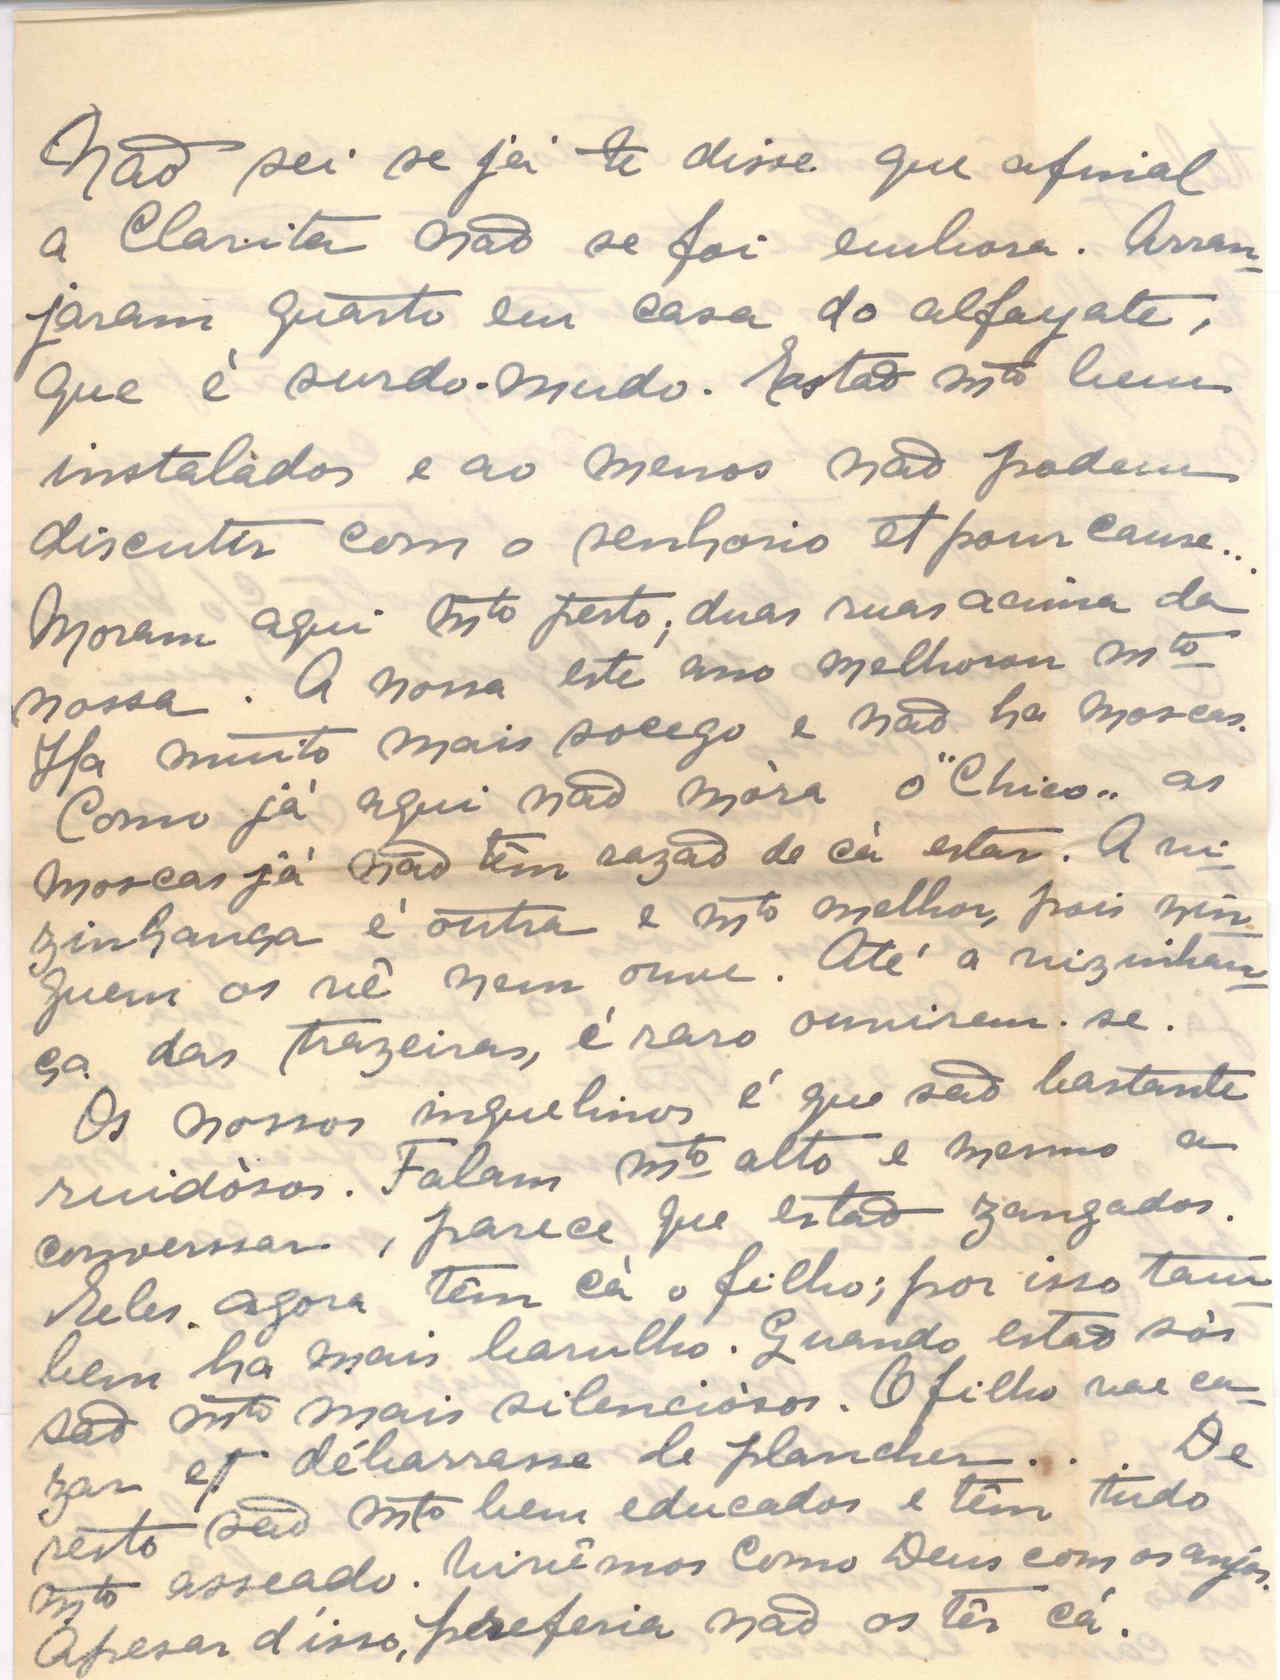 Não sei se já te disse que afinal
a Clarita não se foi embora. Arran-
jaram quarto em casa do alfayate,
que é surdo-mudo. Estão mto bem
instalàdos e ao menos não podem
discutir com o senhorio et pour cause...
Moram aqui mto perto; duas ruas acima da
nossa. A nossa este ano melhorou mto
Ha muito mais socego e não ha moscas.
Como já aqui não móra o "Chico" as
moscas já não têm razão de cá estar. A vi-
zinhança é outra e mto melhor, pois nin-
guem os vê nem ouve. Até a vizinhan-
ça das trazeiras, é raro ouvirem-se.
Os nossos inquelinos é que são bastante
ruidòsos. Falam mto alto e mesmo a
converssar, parece que estão zangados.
Eeles agora têm cá o filho; por isso tam-
bem ha mais barulho. Quando estão sós
são mto mais silenciòsos. O filho vae ca-
zar et débarrasse le plancher... De
resto são mto bem educados e têm tudo
mto asseado. Vivêmos como Deus com os anjos.
Apesar d'isso, preferia não os têr cá.